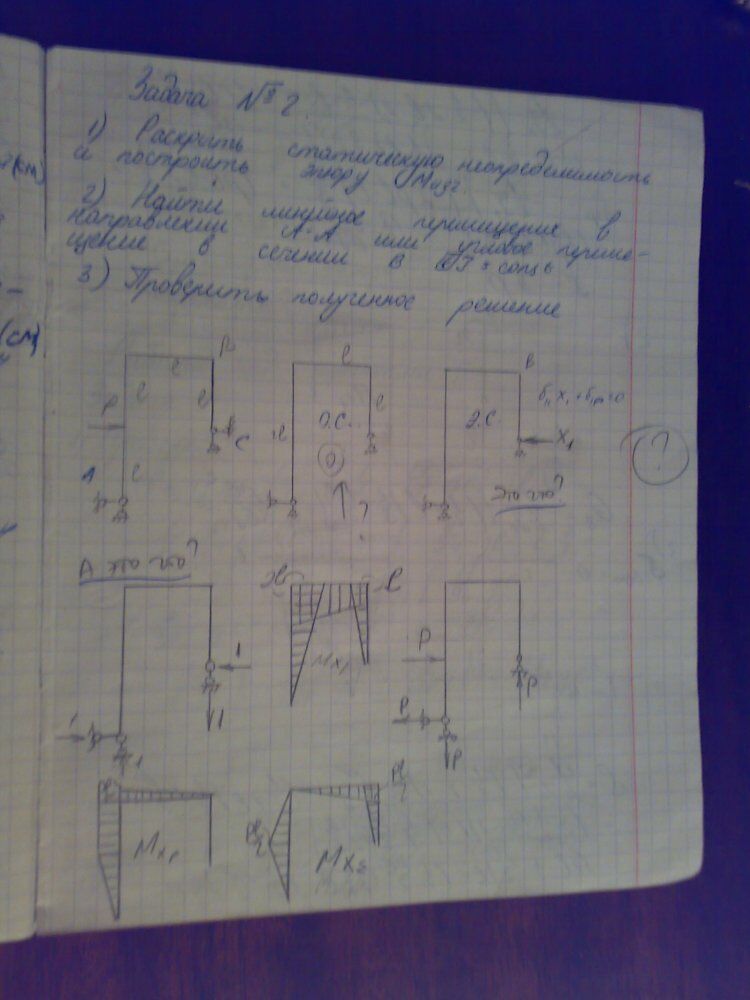 Задача № 2.
1) Раскрыть статическую неопределимость
и построить эпюру Mизг.
2) Найти линейное перемещение в
направлении A-A или угловое переме-
щение в сечении B EJ = const
3) Проверить полученное решение
(см)
B
P
l
l
l
l
A
C
l
l
О.С.
B
Э.С.
δ₁₁X₁+δ₁p=0
X₁
?
?
Это что?
А это что?
1
1
1
1
2l
l
Mx₁
P
P
P
P
Pl
Mxp
Pl/2
Pl/2